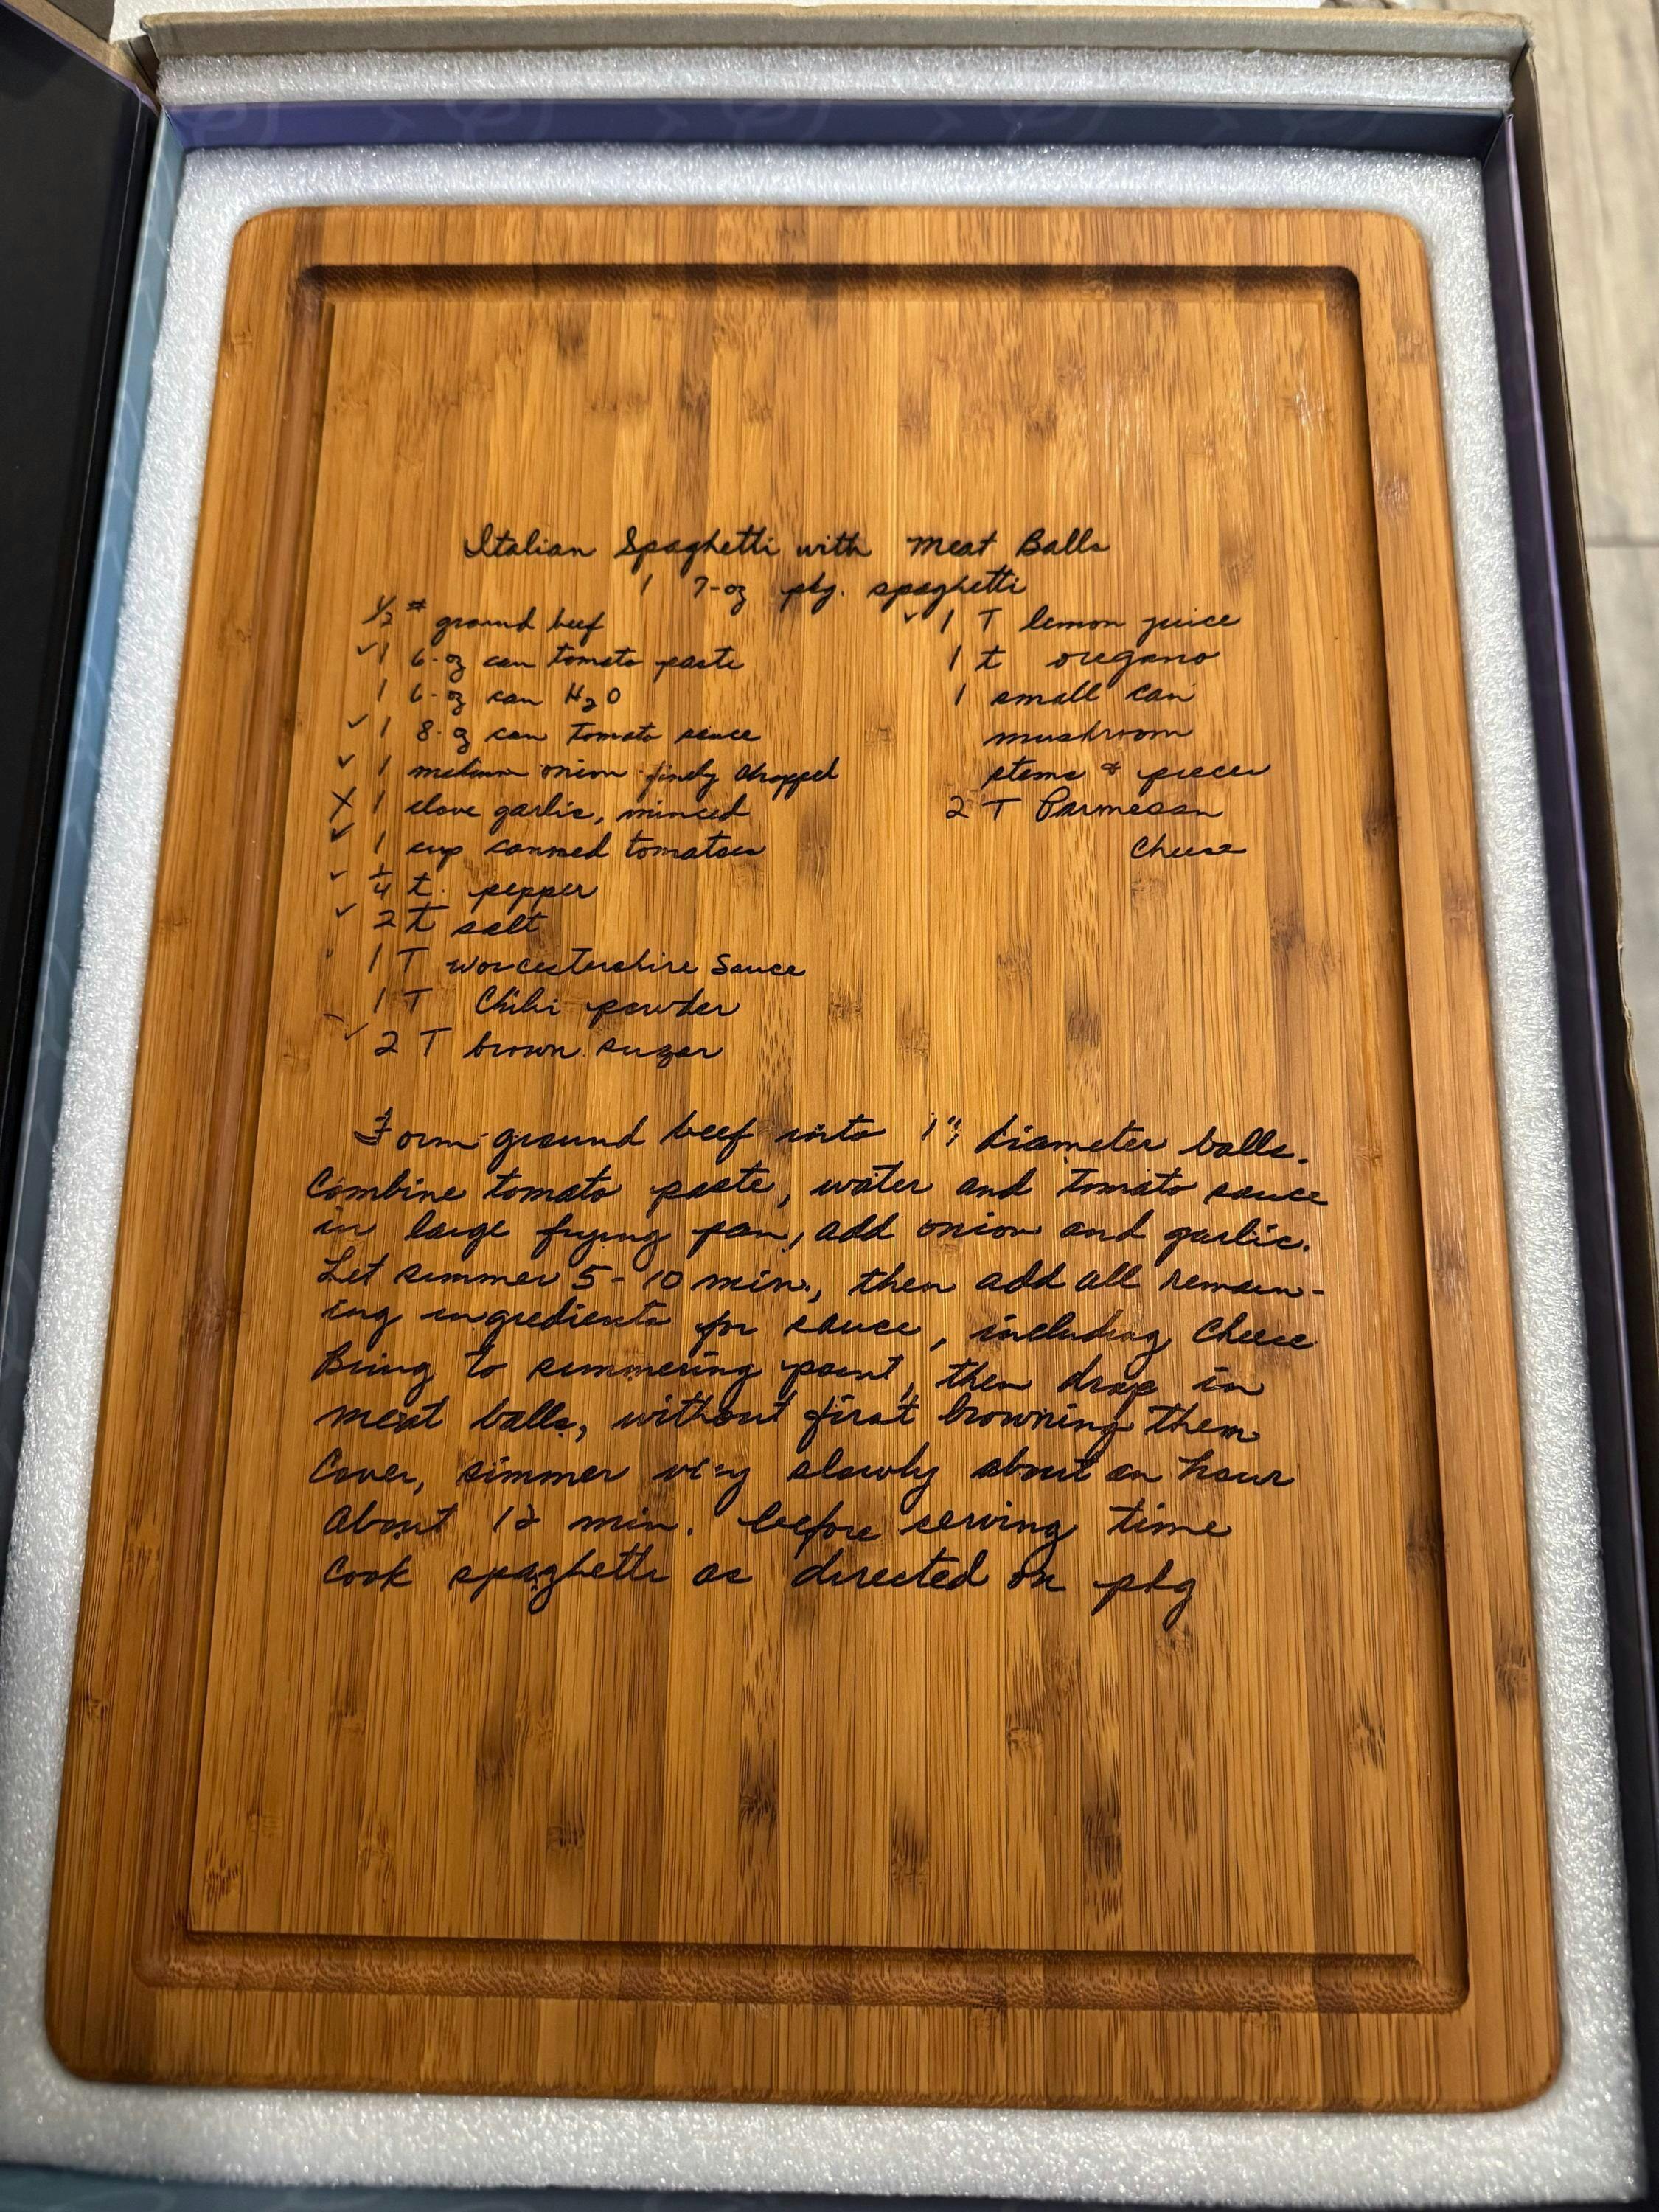 Italian Spaghetti with Meat Balls
1 7-oz pkg. spaghetti
1/2 # ground beef
✓ 1 6-oz can tomato paste
1 6-oz can H₂O
✓ 1 8-oz can tomato sauce
✓ 1 medium onion finely chopped
X 1 clove garlic, minced
✓ 1 cup canned tomatoes
✓ 1/4 t. pepper
✓ 2 t salt
1 T Worcestershire Sauce
1 T Chili powder
✓ 2 T brown sugar
✓ 1 T lemon juice
1 t oregano
1 small can
mushroom
stems & pieces
2 T Parmesan
Cheese
Form ground beef into 1" diameter balls.
Combine tomato paste, water and tomato sauce
in large frying pan, add onion and garlic.
Let simmer 5-10 min., then add all remain-
ing ingredients for sauce, including cheese
Bring to simmering point, then drop in
meat balls, without first browning them
Cover, simmer very slowly about an hour
About 12 min. before serving time
cook spaghetti as directed on pkg